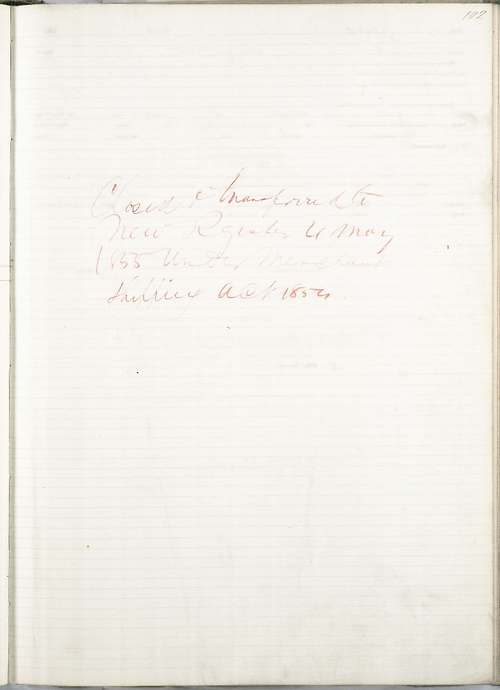 102
Closed & transferred to
New Register 4 May
1855 Under Merchant
Shipping Act 1854.